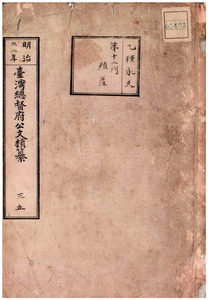 明治三二年
臺灣總督府公文類纂
三五
乙種永久
第十二門
殖產